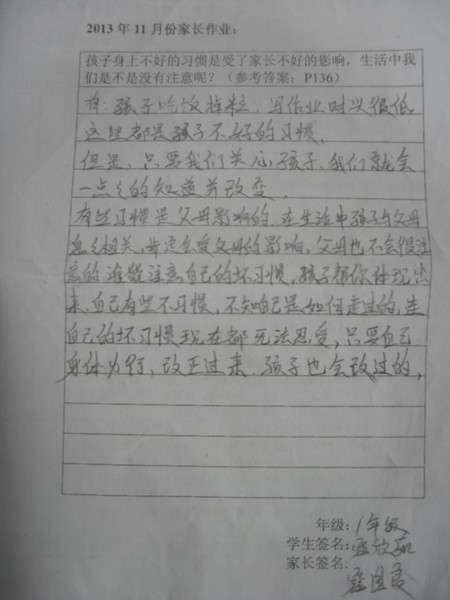 2013 年 11 月份家长作业：
孩子身上不好的习惯是受了家长不好的影响，生活中我
们是不是没有注意呢？（参考答案：P136）
有：孩子吃饭掉粒，写作业时头很低
这些都是孩子不好的习惯，
但是，只要我们关心孩子，我们就会
一点点的知道并改变，
有些习惯是父母影响的，在生活中孩子与父母
息息相关，肯定会受父母的影响，父母也不会很注
意的谁能注意自己的坏习惯，孩子帮你体现出
来，自己有些不习惯，不知自己是如何走过的，连
自己的坏习惯现在都无法忍受，只要自己
身体力行，改正过来，孩子也会改过的，
年级：1年级
学生签名：欣茹
家长签名：